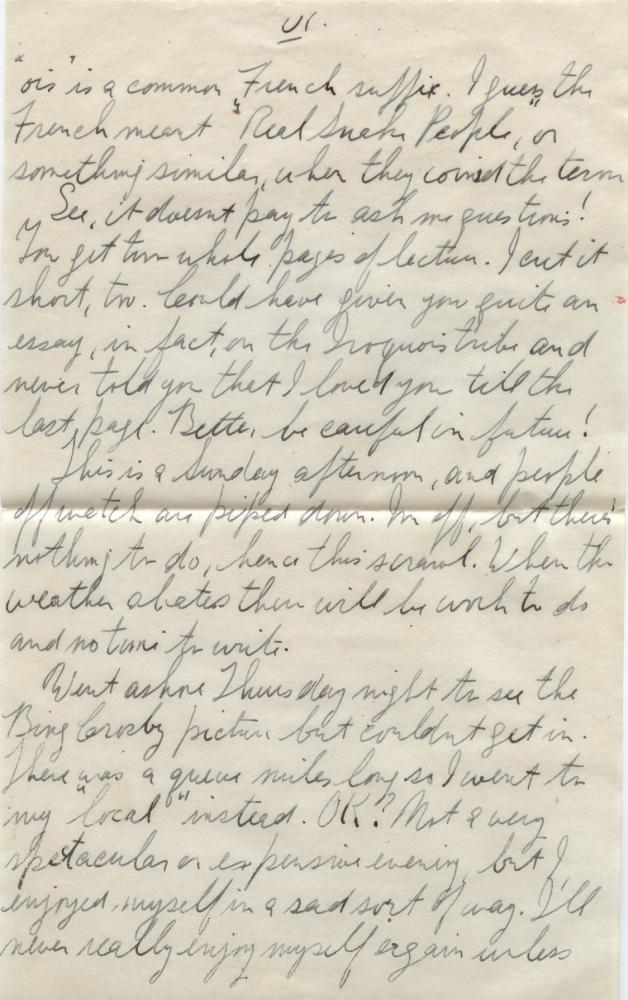 VI.
"ois" is a common French suffix. I guess the
French meant "Real Snake People," or
something similar, when they coined the term
See, it doesnt pay to ask me questions!
You get two whole pages of lecture. I cut it
short, too. Could have given you quite an
essay, in fact, on the Iroquois tribe and
never told you that I loved you till the
last page. Better be careful in future!
This is a Sunday afternoon, and people
off watch are piped down. Im off, but there's
nothing to do, hence this scrawl. When the
weather abates there will be work to do
and no time to write.
Went ashore Thursday night to see the
Bing Crosby picture but couldnt get in.
There was a queue miles long so I went to
my "local" instead. OK? Not a very
spetacular or expensive evening, but I
enjoyed myself in a sad sort of way. I'll
never really enjoy myself ergain unless